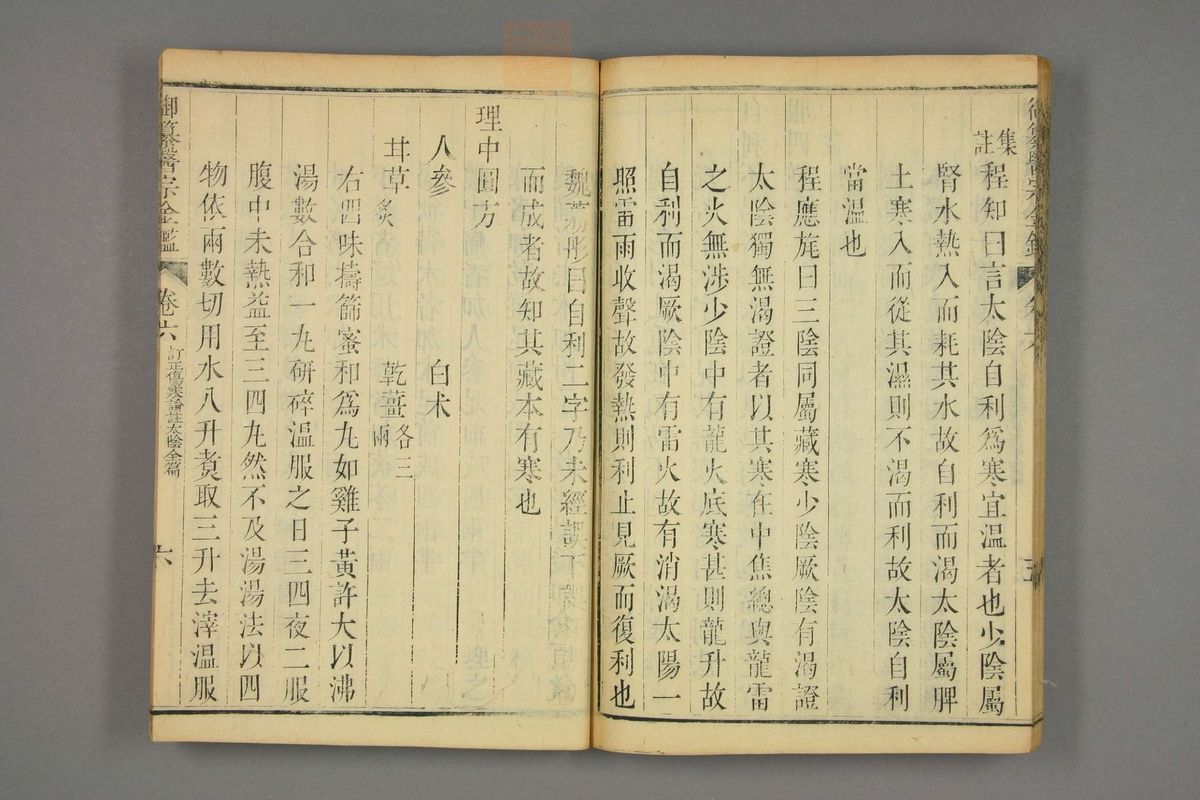 御纂醫宗金鑑 卷六
集註 程知曰言太陰自利爲寒宜温者也少陰屬
腎水熱入而耗其水故自利而渴太陰屬脾
土寒入而從其濕則不渴而利故太陰自利
當温也
程應旄曰三陰同屬藏寒少陰厥陰有渴證
太陰獨無渴證者以其寒在中焦總與龍雷
之火無涉少陰中有龍火底寒甚則龍升故
自利而渴厥陰中有雷火故有消渴太陽一
照雷雨收聲故發熱則利止見厥而復利也
魏荔彤曰自利二字乃未經誤下
而成者故知其藏本有寒也
理中圓方
人參 白术
甘草炙 乾薑各三兩
右四味擣篩蜜和爲丸如雞子黃許大以沸
湯數合和一丸研碎温服之日三四夜二服
腹中未熱益至三四丸然不及湯湯法以四
物依兩數切用水八升煑取三升去滓温服
御纂醫宗金鑑 卷六 訂正傷寒論註太陰全篇 六